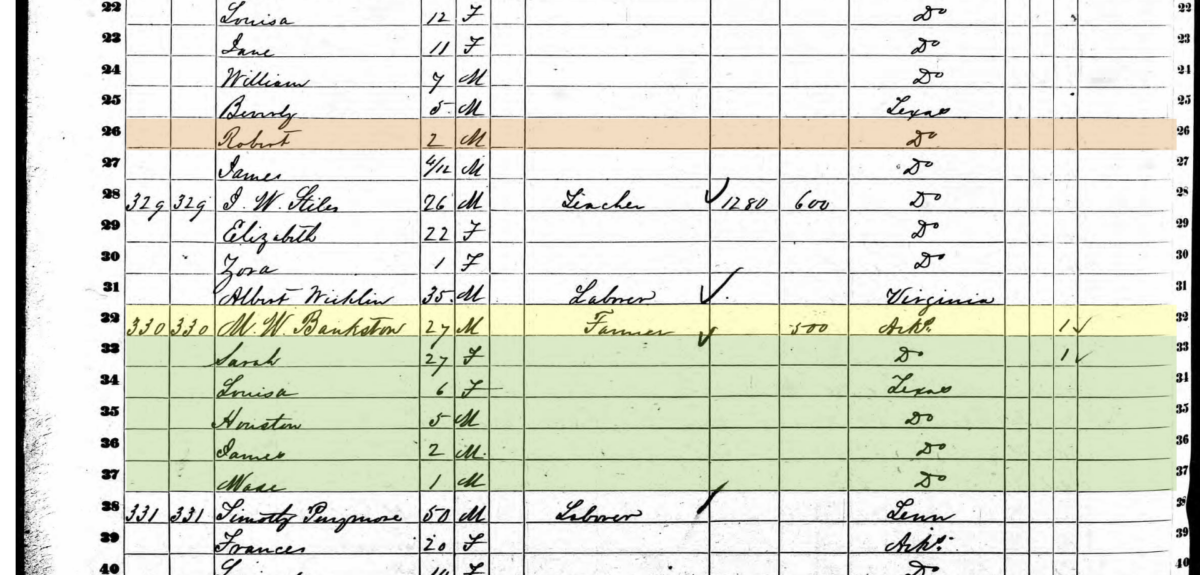 22 Louisa 12 F Do 22
23 Jane 11 F Do 23
24 William 7 M Do 24
25 Beverly 5 M Texas 25
26 Robert 2 M Do 26
27 James 4/12 M Do 27
28 329 329 J. W. Stiles 26 M 1280 600 Do 28
29 Elizabeth 22 F Do 29
30 Zora 1 F Do 30
31 Albert Wicklin 35 M Laborer Virginia 31
32 330 330 M. W. Bankston 27 M Farmer 500 Arks. 1 32
33 Sarah 27 F Do 1 33
34 Louisa 6 F Texas 34
35 Houston 5 M Do 35
36 James 2 M Do 36
37 M 1 Do 37
38 331 331 Timothy 50 M Laborer Tenn 38
39 Frances 20 F Arks. 39
40 F Do 40